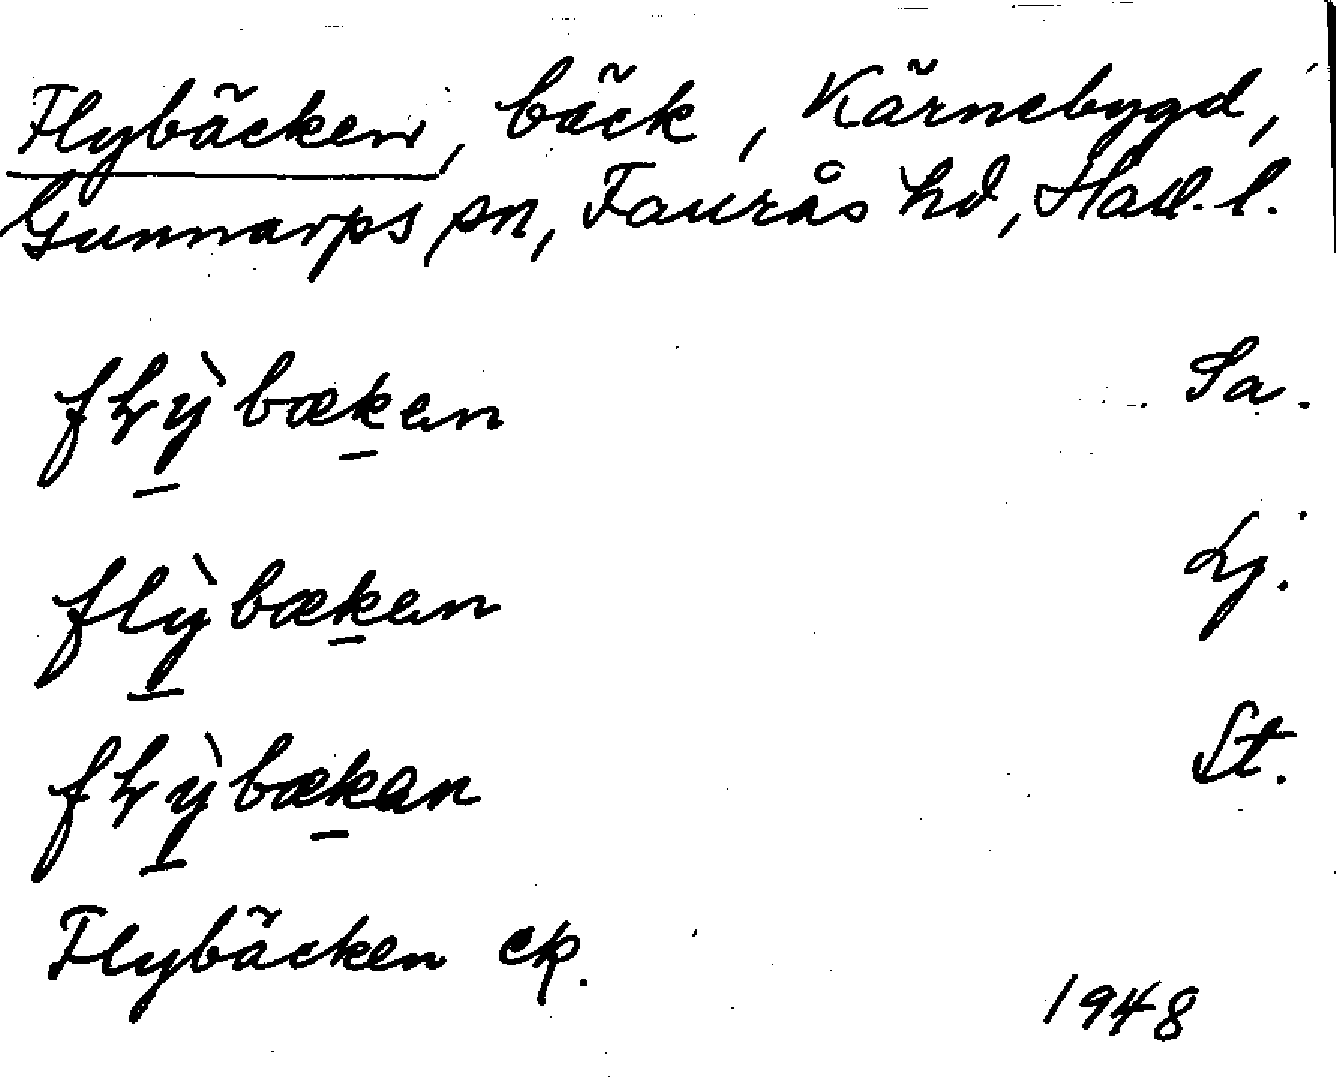 Flybäcken, bäck, Kärnebygd,
Gunnarps sn, Faurås hd, Hall. l.
flỳbæken Sa.
flỳbæken Lj.
flỳbækan St.
Flybäcken ek.
1948